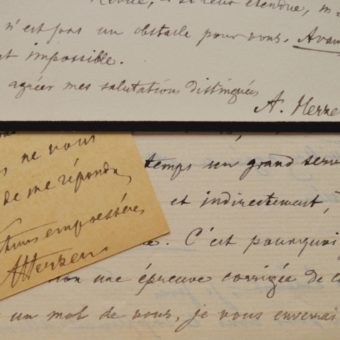 si leur étendue, m
n'est pas un obstacle pour vous. Avan
t impossible.
agréer mes salutations distinguées
A. Herzen
ne vous
de me répondre
empressées
AHerzen
temps un grand serv
et indirectement,
e. C'est pourquoi
on une épreuve corrigée de c
un mot de vous, je vous enverrai